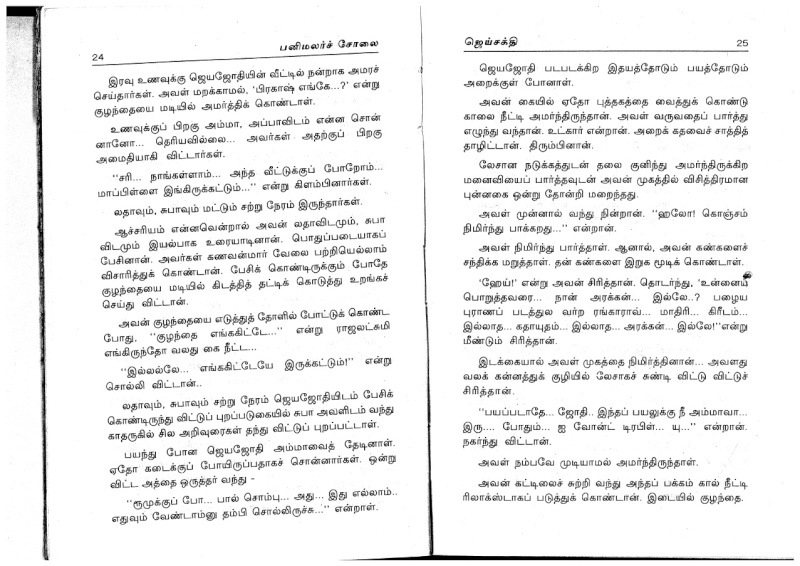 24
பனிமலர்ச் சோலை
இரவு உணவுக்கு ஜெயஜோதியின் வீட்டில் நன்றாக அமரச்
செய்தார்கள். அவள் மறக்காமல், ‘பிரகாஷ் எங்கே...?’ என்று
குழந்தையை மடியில் அமர்த்திக் கொண்டாள்.
உணவுக்குப் பிறகு அம்மா, அப்பாவிடம் என்ன சொன்
னானோ... தெரியவில்லை... அவர்கள் அதற்குப் பிறகு
அமைதியாகி விட்டார்கள்.
‘‘சரி... நாங்கள்ளாம்... அந்த வீட்டுக்குப் போறோம்...
மாப்பிள்ளை இங்கிருக்கட்டும்...’’ என்று கிளம்பினார்கள்.
லதாவும், சுபாவும் மட்டும் சற்று நேரம் இருந்தார்கள்.
ஆச்சரியம் என்னவென்றால் அவன் லதாவிடமும், சுபா
விடமும் இயல்பாக உரையாடினான். பொதுப்படையாகப்
பேசினான். அவர்கள் கணவன்மார் வேலை பற்றியெல்லாம்
விசாரித்துக் கொண்டான். பேசிக் கொண்டிருக்கும் போதே
குழந்தையை மடியில் கிடத்தித் தட்டிக் கொடுத்து உறங்கச்
செய்து விட்டான்.
அவன் குழந்தையை எடுத்துத் தோளில் போட்டுக் கொண்ட
போது, ‘‘குழந்தை எங்ககிட்டே...’’ என்று ராஜலட்சுமி
எங்கிருந்தோ வலது கை நீட்ட...
‘‘இல்லல்லே... எங்ககிட்டேயே இருக்கட்டும்!’’ என்று
சொல்லி விட்டான்..
லதாவும், சுபாவும் சற்று நேரம் ஜெயஜோதியிடம் பேசிக்
கொண்டிருந்து விட்டுப் புறப்படுகையில் சுபா அவளிடம் வந்து
காதருகில் சில அறிவுரைகள் தந்து விட்டுப் புறப்பட்டாள்.
பயந்து போன ஜெயஜோதி அம்மாவைத் தேடினாள்.
ஏதோ கடைக்குப் போயிருப்பதாகச் சொன்னார்கள். ஒன்று
விட்ட அத்தை ஒருத்தர் வந்து -
‘‘ரூமுக்குப் போ... பால் சொம்பு... அது... இது எல்லாம்..
எதுவும் வேண்டாம்னு தம்பி சொல்லிருச்சு...’’ என்றாள்.
ஜெய்சக்தி
25
ஜெயஜோதி படபடக்கிற இதயத்தோடும் பயத்தோடும்
அறைக்குள் போனாள்.
அவன் கையில் ஏதோ புத்தகத்தை வைத்துக் கொண்டு
காலை நீட்டி அமர்ந்திருந்தான். அவள் வருவதைப் பார்த்து
எழுந்து வந்தான். உட்கார் என்றான். அறைக் கதவைச் சாத்தித்
தாழிட்டான். திரும்பினான்.
லேசான நடுக்கத்துடன் தலை குனிந்து அமர்ந்திருக்கிற
மனைவியைப் பார்த்தவுடன் அவன் முகத்தில் விசித்திரமான
புன்னகை ஒன்று தோன்றி மறைந்தது.
அவள் முன்னால் வந்து நின்றான். ‘‘ஹலோ! கொஞ்சம்
நிமிர்ந்து பாக்கறது...’’ என்றான்.
அவள் நிமிர்ந்து பார்த்தாள். ஆனால், அவன் கண்களைச்
சந்திக்க மறுத்தாள். தன் கண்களை இறுக மூடிக் கொண்டாள்.
‘ஹேய்!’ என்று அவன் சிரித்தான். தொடர்ந்து, ‘உன்னைப்
பொறுத்தவரை... நான் அரக்கன்... இல்லே..? பழைய
புராணப் படத்துல வர்ற ரங்காராவ்... மாதிரி... கிரீடம்...
இல்லாத... கதாயுதம்... இல்லாத... அரக்கன்... இல்லே!’’என்று
மீண்டும் சிரித்தான்.
இடக்கையால் அவள் முகத்தை நிமிர்த்தினான்... அவளது
வலக் கன்னத்துக் குழியில் லேசாகச் சுண்டி விட்டு விட்டுச்
சிரித்தான்.
‘‘பயப்படாதே... ஜோதி.. இந்தப் பயலுக்கு நீ அம்மாவா...
இரு.... போதும்... ஐ வோன்ட் டிரபிள்... யு...’’ என்றான்.
நகர்ந்து விட்டான்.
அவள் நம்பவே முடியாமல் அமர்ந்திருந்தாள்.
அவன் கட்டிலைச் சுற்றி வந்து அந்தப் பக்கம் கால் நீட்டி
ரிலாக்ஸ்டாகப் படுத்துக் கொண்டான். இடையில் குழந்தை.